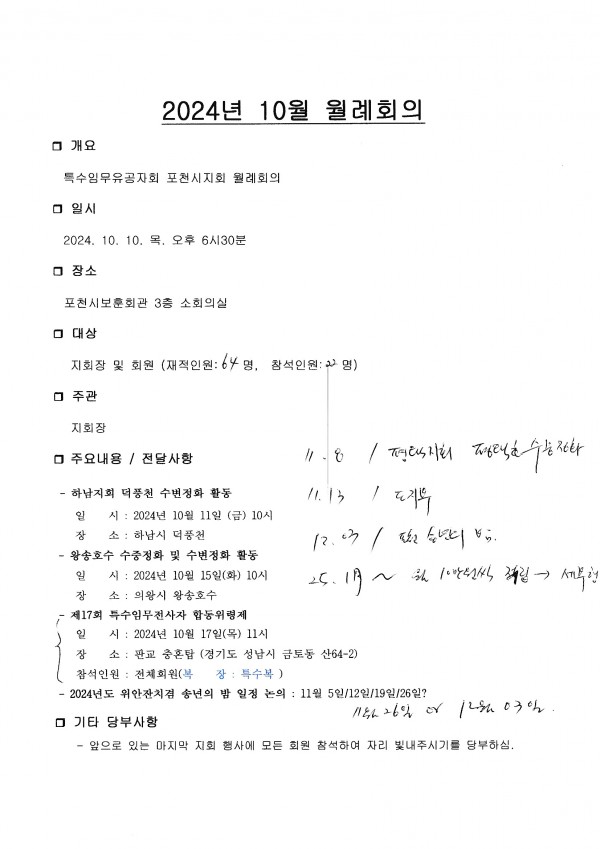 2024년 10월 월례회의
❒ 개요
특수임무유공자회 포천시지회 월례회의
❒ 일시
2024. 10. 10. 목. 오후 6시30분
❒ 장소
포천시보훈회관 3층 소회의실
❒ 대상
지회장 및 회원 (재적인원: 64 명, 참석인원: 22 명)
❒ 주관
지회장
❒ 주요내용 / 전달사항
11. 8 / 평택지회 평택호 수중정화
- 하남지회 덕풍천 수변정화 활동
11. 13 / 도지부
일 시 : 2024년 10월 11일 (금) 10시
장 소 : 하남시 덕풍천
12. 03 / 송년의 밤.
- 왕송호수 수중정화 및 수변정화 활동
일 시 : 2024년 10월 15일(화) 10시
25. 1月 ~ 월 10만원씩 적립 →
장 소 : 의왕시 왕송호수
- 제17회 특수임무전사자 합동위령제
일 시 : 2024년 10월 17일(목) 11시
장 소 : 판교 충혼탑 (경기도 성남시 금토동 산64-2)
참석인원 : 전체회원(복 장 : 특수복 )
- 2024년도 위안잔치겸 송년의 밤 일정 논의 : 11월 5일/12일/19일/26일?
11월 26일 or 12월 03일.
❒ 기타 당부사항
- 앞으로 있는 마지막 지회 행사에 모든 회원 참석하여 자리 빛내주시기를 당부하심.